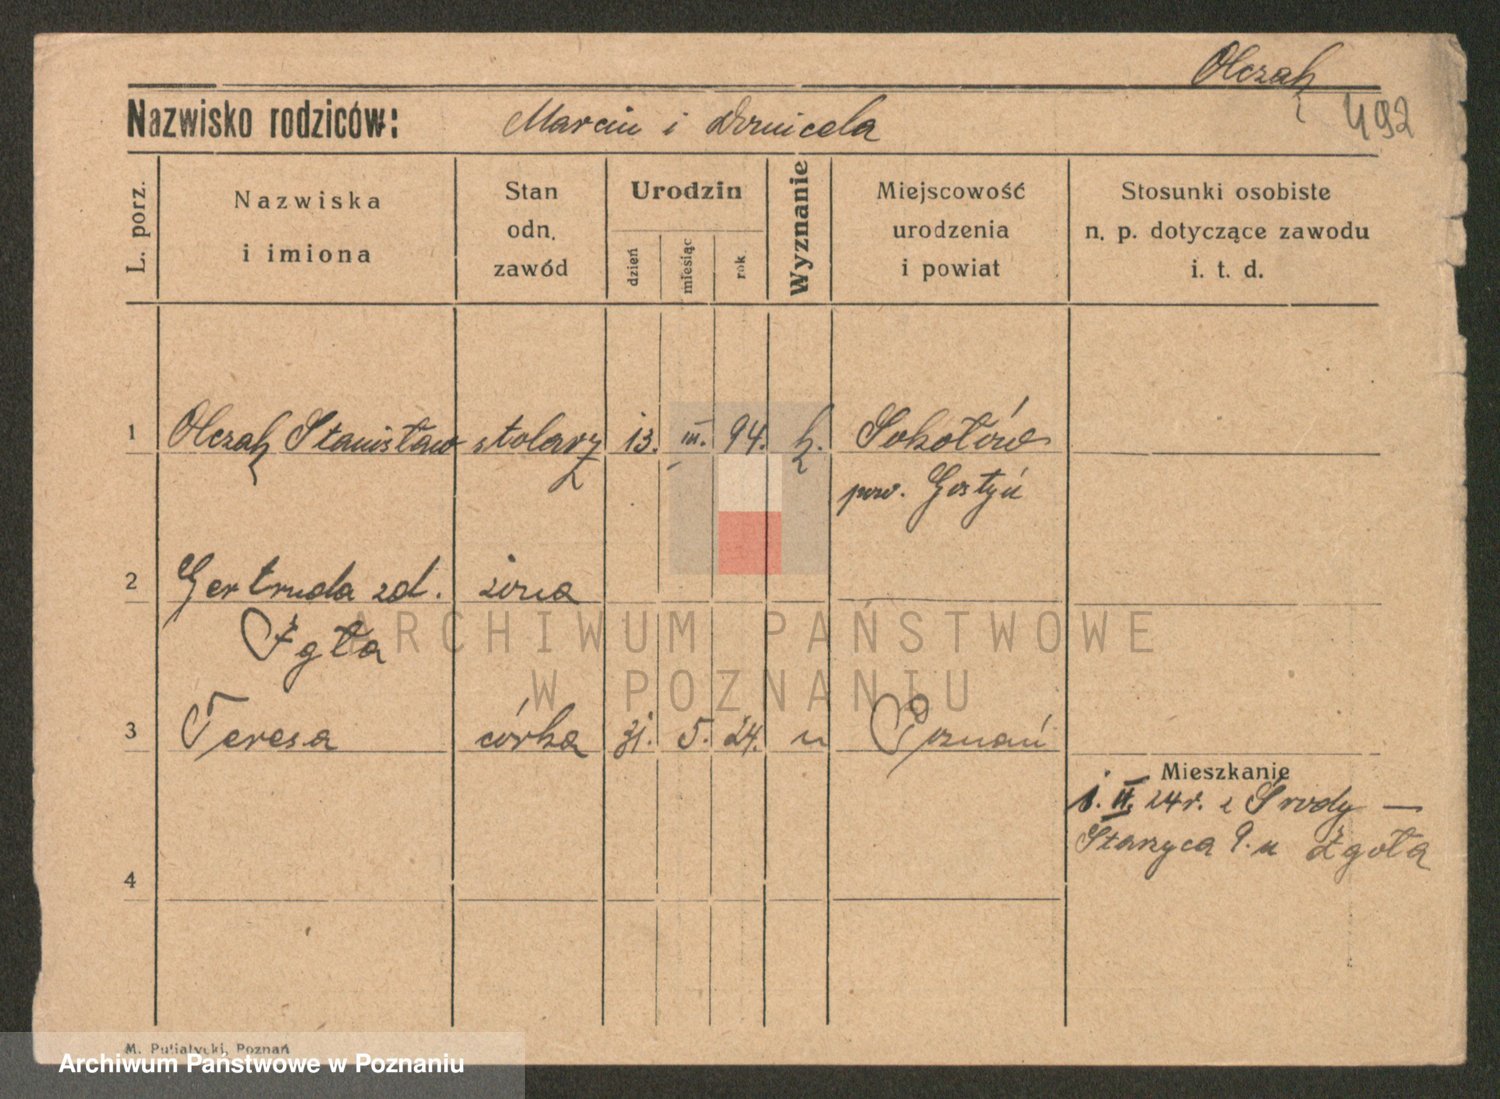 Olczak
492
Nazwisko rodziców: Marcin i
L. porz. Nazwiska i imiona Stan odn. zawód Urodzin dzień miesiąc rok Wyznanie Miejscowość urodzenia i powiat Stosunki osobiste n. p. dotyczące zawodu i. t. d.
1 Olczak Stanisław stolarz 13. III. 94. k. Sokołów
pow. Gostyń
2 Gertruda zd. żona
Żgła
3 Teresa córka 31. 5. 24. Poznań
Mieszkanie
1. II. 24 r. z Środy —
9. u Żgoła
4
ARCHIWUM PAŃSTWOWE
W POZNANIU
M. Putiatycki, Poznań
Archiwum Państwowe w Poznaniu